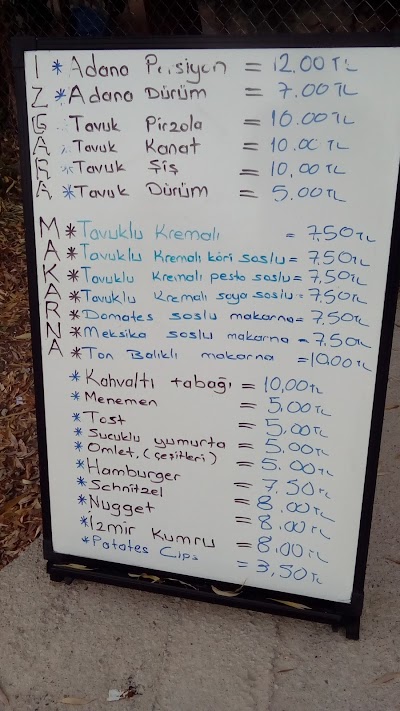 IZGARA
* Adana Porsiyon = 12.00 TL
* Adana Dürüm = 7.00 TL
Tavuk Pirzola = 10.00 TL
Tavuk Kanat = 10.00 TL
* Tavuk Şiş = 10,00 TL
* Tavuk Dürüm = 5.00 TL
MAKARNA
* Tavuklu Kremalı = 7,50 TL
* Tavuklu Kremalı köri soslu = 7,50 TL
* Tavuklu Kremalı pesto soslu = 7,50 TL
* Tavuklu Kremalı soya soslu = 7,50 TL
* Domates soslu makarna = 7,50 TL
* Meksika soslu makarna = 7,50 TL
* Ton Balıklı makarna = 10.00 TL
* Kahvaltı tabağı = 10,00 TL
* Menemen = 5,00 TL
* Tost = 5.00 TL
* Sucuklu yumurta = 5.00 TL
* Omlet. (çeşitleri) = 5.00 TL
* Hamburger = 7.50 TL
* Schnitzel = 8.00 TL
* Nugget = 8.00 TL
* İzmir Kumru = 8.00 TL
* Patates Cips = 3,50 TL